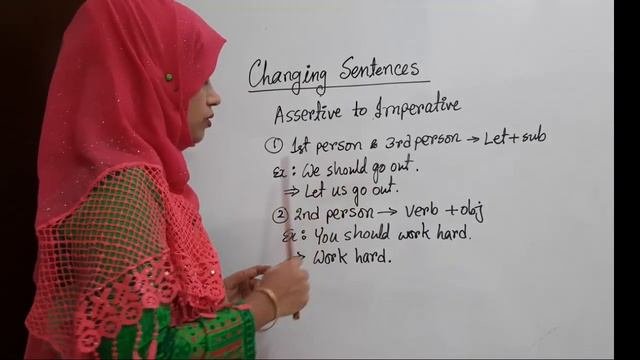 Changing Sentences
Assertive to Imperative
① 1st person & 3rd person → Let + sub
Ex : We should go out.
⇒ Let us go out.
② 2nd person → verb + obj
Ex : You should work hard.
⇒ Work hard.